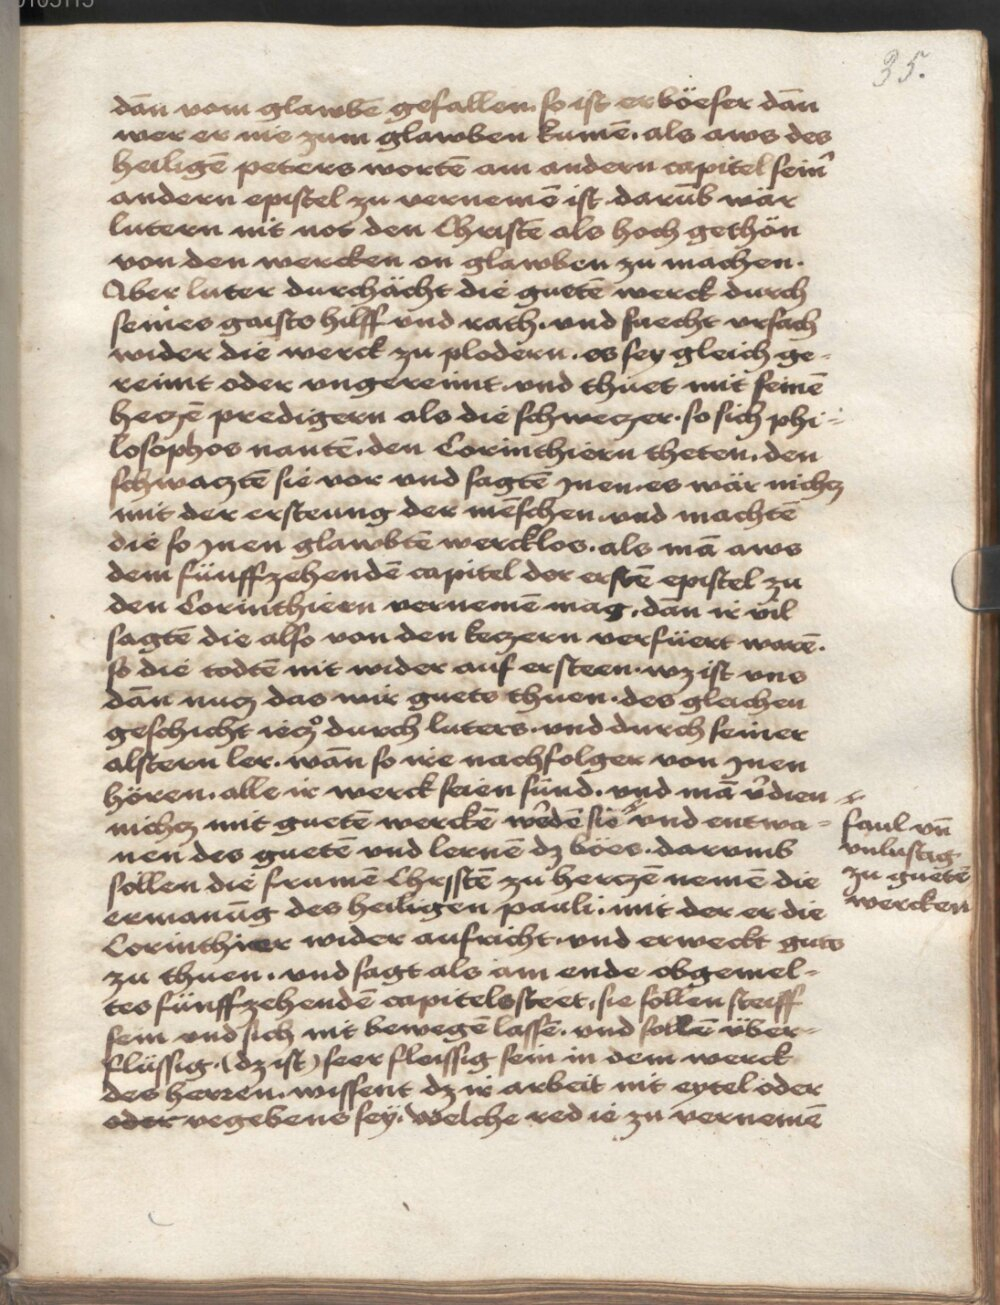 35.
dañ vom glawbē gefallen. so ist er böeser dañ
wer er nie zum glawben kumē. als aws des
heiligē peters wortē am andern capitel sein̄
andern epistel zu vernemē ist. darūb wär
lutern nit not den Christē als hoch gethön
von den wercken on glawben zu machen.
Aber luter durchächt die guete werck durch
seines gaists hilff vnd rath. vnd suecht vrsach
wider die werck zu plodern. es sey gleich ge-
reimt oder vngereimt. vnd thuet mit seinē
heczē predigern als die schweczer. so sich phi-
losophos nantē. den Corinthiern theten. den
schwacztē sie vor vnd sagtē jnen. es wär nichcz
mit der ersteung der mēschen. vnd machtē
die so jnen glawbtē wercklos. als mā aws
dem fünffzehendē capitel der erstē epistel zu
den Corinthiern vernemē mag. dañ ir vil
sagtē die also von den keczern verfüert warē.
so die todtē nit wider auf ersteen. wz ist vns
dañ nucz das wir guets thuen. des gleichen
geschicht iecz durch luters. vnd durch seiner
alstern ler. wañ so ire nachfolger von jnen
hören. alle ir werck seien sünd. vnd mā v̄dien
nichcz mit guetē werckē w̄dē sie vnd entwa-
nen des guetē vnd lernē dz böes. darumb
sollen die frumē Christē zu herczē nemē die
ermanūg des heiligen pauli. mit der er die
Corinthier wider aufricht. vnd erweckt guts
zu thuen. vnd sagt als am ende obgemel-
tes fünffzehendē capitels steet. sie sollen steiff
sein vnd sich nit bewegē lassē. vnd sollē über-
flüssig. (dz ist) seer fleissig sein in dem werck
des herren. wissent dz ir arbeit nit eytel oder
oder vegebens sey. Welche red ie zu vernemē
faul vñ
vnlustig
zu guetē
wercken